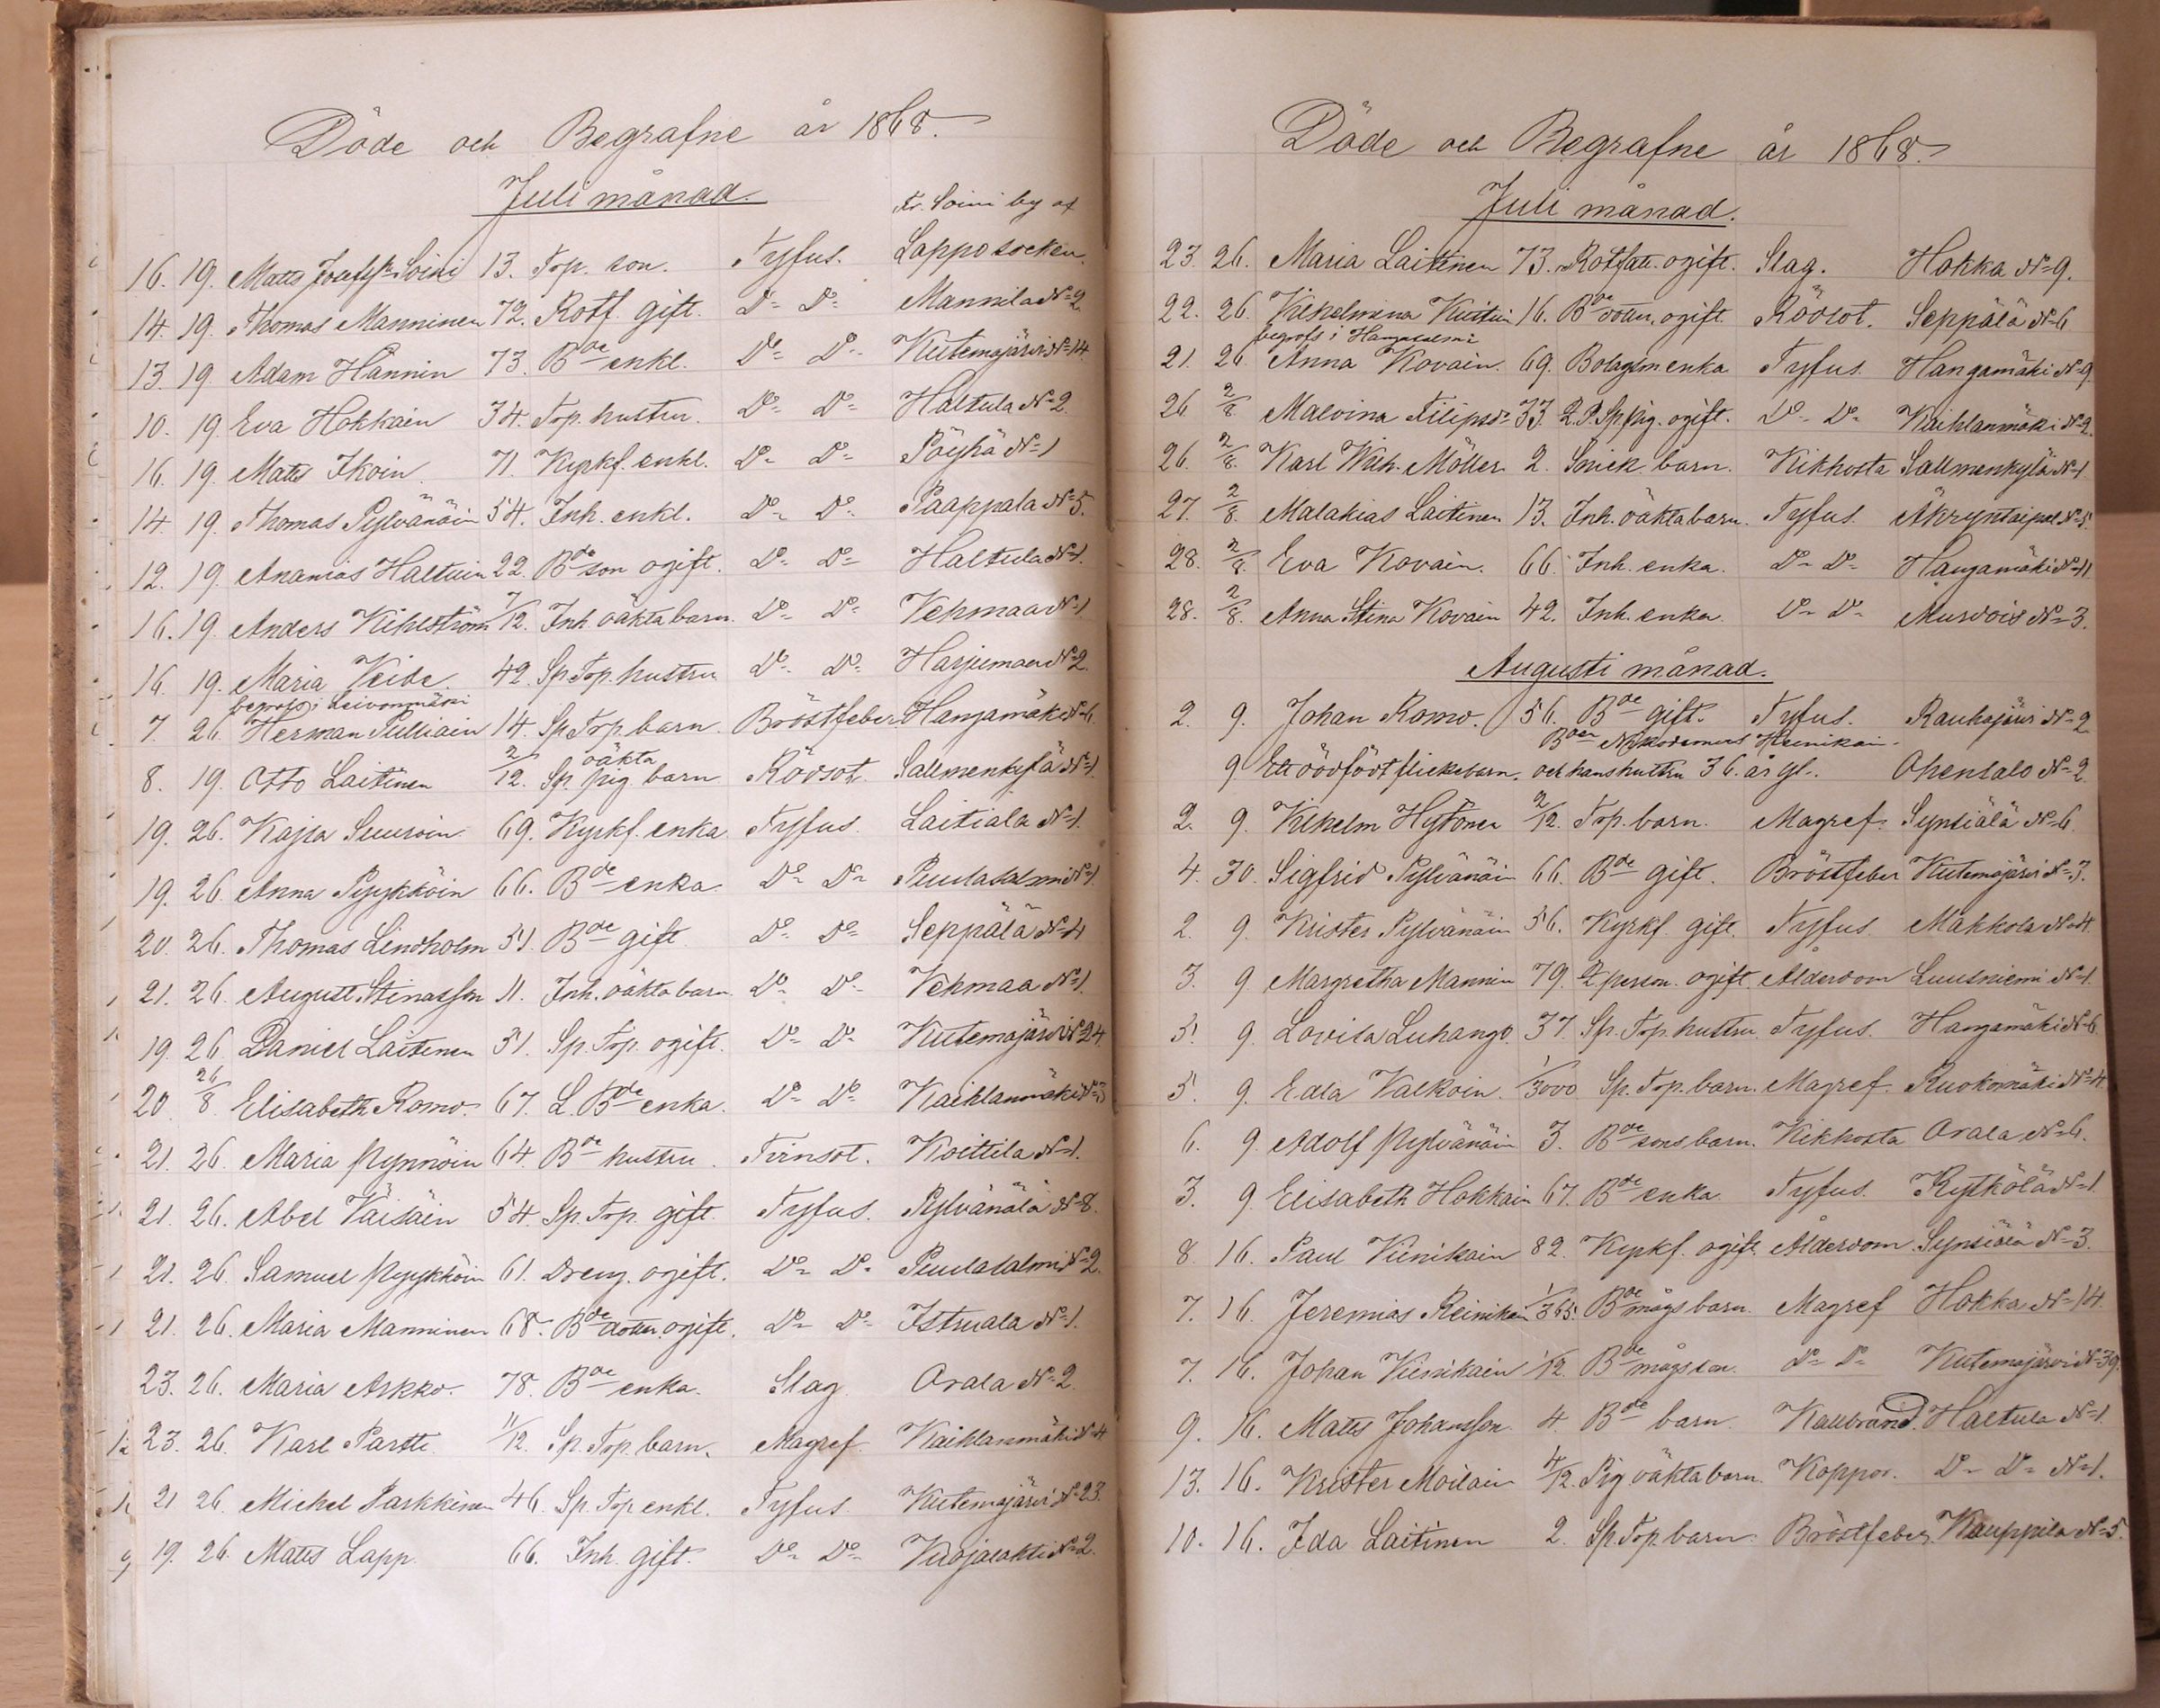 Döde och Begrafne år 1868.
Juli månad.
Fr. Soini by af
16. 19. Matts Soini 13. Torp. son. Tyfus. Lappo socken.
14. 19. Thomas Manninen 72. Rotf. gift. Do Do Mannila No 2
13. 19. Adam Hännin 73. Bde enkl. Do Do Kutemajärvi No 14
10. 19. Eva Hokkain 34. Torp. hustru. Do Do Haltula No 2
16. 19. Matts Ikoin 71. Kyrkf. enkl. Do Do Pöyhä No 1
14. 19. Thomas Pylvänäin 54. Inh. enkl. Do Do Paappala No 5.
12. 19. Ananias Haltuin 22. Bde son ogift. Do Do Haltula No 1.
16. 19. Anders Kihlström 7/12. Inh. oäkta barn. Do Do Vehmaa No 1
16. 19. Maria Veide. 42. Sp. Torp. hustru Do Do Harjumaa No 2.
begrofs i Leivonmäki
7. 26. Herman Pulliain 14. Sp. Torp. barn. Bröstfeber Hangamäki No 6.
8. 19. Otto Laitinen 2/12. Sp. pig. oäkta barn Rödsot. Sallmenkylä No 1
19. 26. Kajsa Suuroin 69. Kyrkf. enka Tyfus. Laitiala No 1.
19. 26. Anna Pyykköin 66. Bde enka. Do Do Puulasalmi No 1.
20. 26. Thomas Lindholm 51. Bde gift. Do Do Seppälä No 4
21. 26. August Stinasson 11. Inh. oäkta barn. Do Do Vehmaa No 1.
19. 26. Daniel Laitinen 51. Sp. Torp. ogift. Do Do Kutemajärvi No 24
20 26/8 Elisabeth Romo. 67. L. Bde enka. Do Do Kaihlanmäki No 3
21. 26. Maria Pynnöin 64. Bde hustru. Tvinsot. Koittila No 1.
21. 26. Abel Väisäin 54. Sp. Torp. gift. Tyfus. Pylvänälä No 8.
21. 26. Samuel Pyykköin 61. Dreng. ogift. Do Do Puulasalmi No 2.
21. 26. Maria Manninen 68. Bde dotter. ogift. Do Do Istruala No 1.
23. 26. Maria Askko. 78. Bde enka. Slag Orala No 2
23. 26. Karl Partti. 11/12. Sp. Torp. barn. Magref. Kaihlanmäki No 4
21 26. Michel Parkkinen 46. Sp. Torp enkl. Tyfus. Kutemajärvi No 23.
19. 26. Matts Lapp. 66. Inh. gift. Do Do Vuojalahti No 2.
Döde och Begrafne år 1868.
Juli månad.
23. 26. Maria Laitinen 73. Rotfatt. ogift. Slag. Hokka No 9.
22. 26. Vilhelmina Kuituin 16. Bde dotter. ogift. Rödsot. Seppälä No 6
begrofs i Hangasalmi
21. 26. Anna Kovain. 69. Bolagsm enka Tyfus. Hangamäki No 9.
26 2/8 Malvina Filipsd. 33. Sp. pig. ogift. Do Do Kaihlanmäki No 2.
26. 2/8. Karl Wilh. Möller 2. Snick. barn. Kikhosta Sallmenkylä No 1.
27. 2/8. Malakias Laitinen 13. Inh. oäkta barn. Tyfus.
28. 2/8. Eva Kovain. 66. Inh. enka. Do Do Hangamäki No 11
28. 2/8. Anna Stina Kovain 42. Inh. enka. Do Do Murdois No 3.
Augusti månad.
2. 9. Johan Romo. 56. Bde gift. Tyfus. Rauhajärvi No 2
Bden Nikodemus Heinikain
9 Ett dödfödt flickebarn. och hans hustru 36. år gl. Ohensalo No 2.
2. 9. Vilhelm Hytönen 2/12. Torp. barn. Magref. Synsiälä No 6.
4. 30. Sigfrid Pylvänäin 66. Bde gift. Bröstfeber Kutemajärvi No 3.
2. 9. Krister Pylvänäin 56. Kyrkf. gift. Tyfus. Makkola No 4.
3. 9. Margretha Mannin 79. person. ogift Ålderdom Luusniemi No 1.
5. 9. Lovisa Luhango. 37. Sp. Torp. hustru Tyfus. Hangamäki No 6
5. 9. Edla Valkoin. 1/3000 Sp. Torp. barn. Magref. Ruokomäki No 4.
6. 9. Adolf Pylvänäin 3. Bde sons barn. Kikhosta Orala No 6.
3. 9. Elisabeth Hokkain 67. Bde enka. Tyfus. Kytkölä No 1.
8. 16. Paul Viinikain 82. Kyrkf. ogift. Ålderdom. Synsiälä No 3.
7. 16. Jeremias Reinikain 1/365. Bde mågs barn. Magref Hokka No 14.
7. 16. Johan Viinikain 1/12. Bde mågs son. Do Do Kutemajärvi No 39.
9. 16. Matts Johansson 4. Bde barn. Kallbrand. Haltula No 1.
13. 16. Krister Moilain 4/12. Pig oäkta barn. Koppor. Do Do No 1.
10. 16. Ida Laitinen 2. Sp. Torp. barn. Bröstfeber. Kauppila No 5.